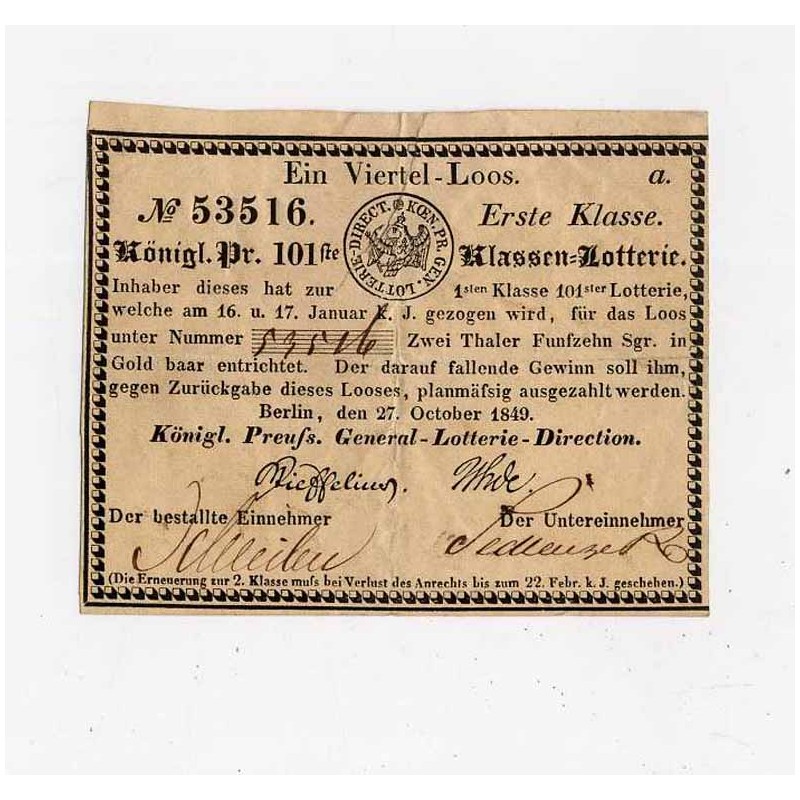 Ein Viertel-Loos. a.
№ 53516. Erste Klasse.
KŒN. PR. GEN. LOTTERIE-DIRECT.
Königl. Pr. 101ste Klassen=Lotterie.
Inhaber dieses hat zur 1sten Klasse 101ster Lotterie,
welche am 16. u. 17. Januar k. J. gezogen wird, für das Loos
unter Nummer 53516 Zwei Thaler Funfzehn Sgr. in
Gold baar entrichtet. Der darauf fallende Gewinn soll ihm,
gegen Zurückgabe dieses Looses, planmäſsig ausgezahlt werden.
Berlin, den 27. October 1849.
Königl. Preuſs. General-Lotterie-Direction.
Der bestallte Einnehmer Der Untereinnehmer
(Die Erneuerung zur 2. Klasse muſs bei Verlust des Anrechts bis zum 22. Febr. k. J. geschehen.)